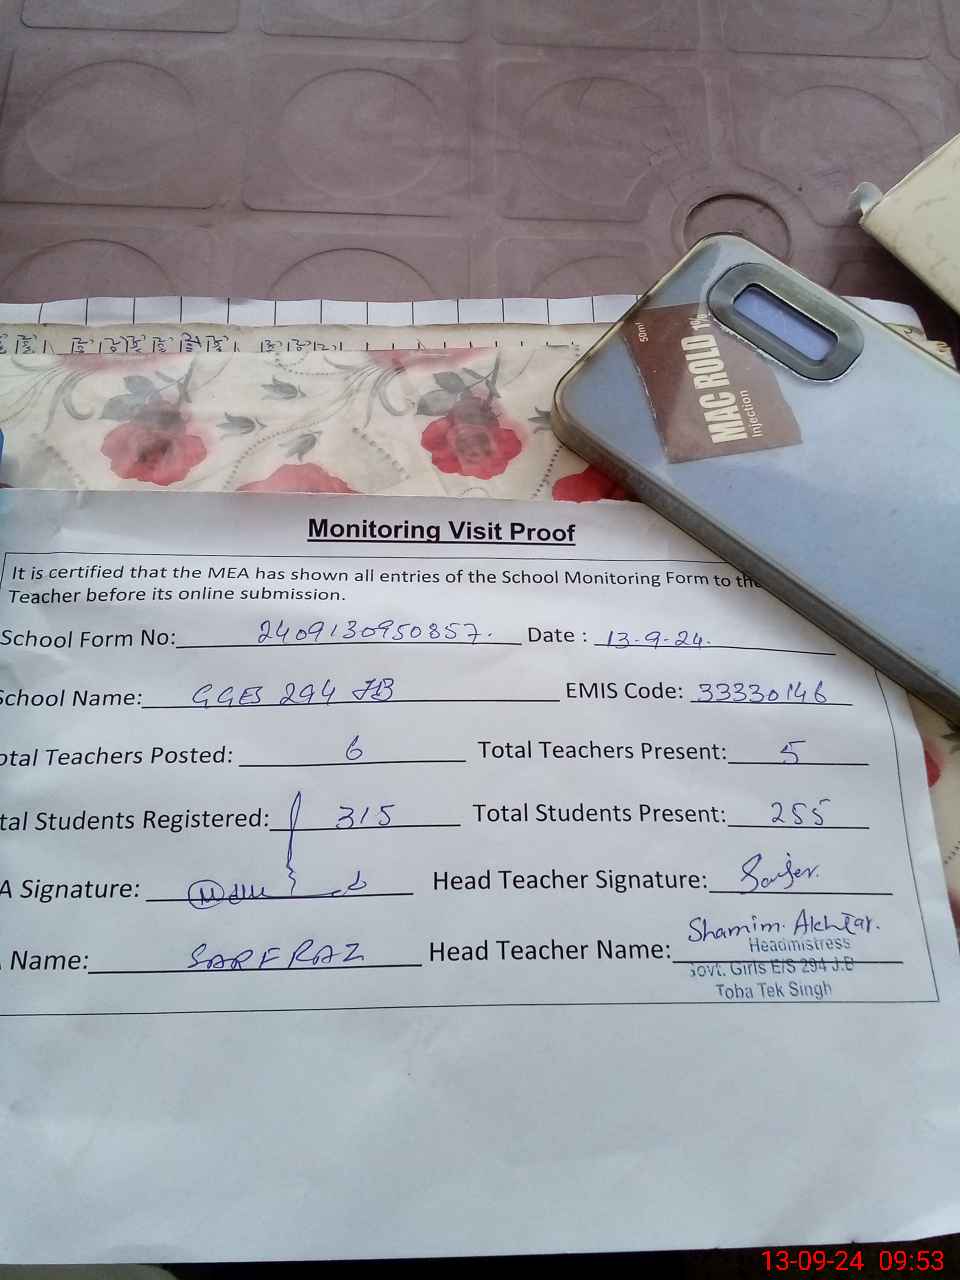 50ml
MAC ROLD 1%
Injection
Monitoring Visit Proof
It is certified that the MEA has shown all entries of the School Monitoring Form to the
Teacher before its online submission.
School Form No: 2409130950857. Date : 13-9-24.
School Name: GGES 294 JB EMIS Code: 33330146
otal Teachers Posted: 6 Total Teachers Present: 5
tal Students Registered: 315 Total Students Present: 255
A Signature: Head Teacher Signature:
Name: SARFRAZ Head Teacher Name: Shamim Akhtar.
Headmistress
Govt. Girls E/S 294 J.B
Toba Tek Singh
13-09-24 09:53